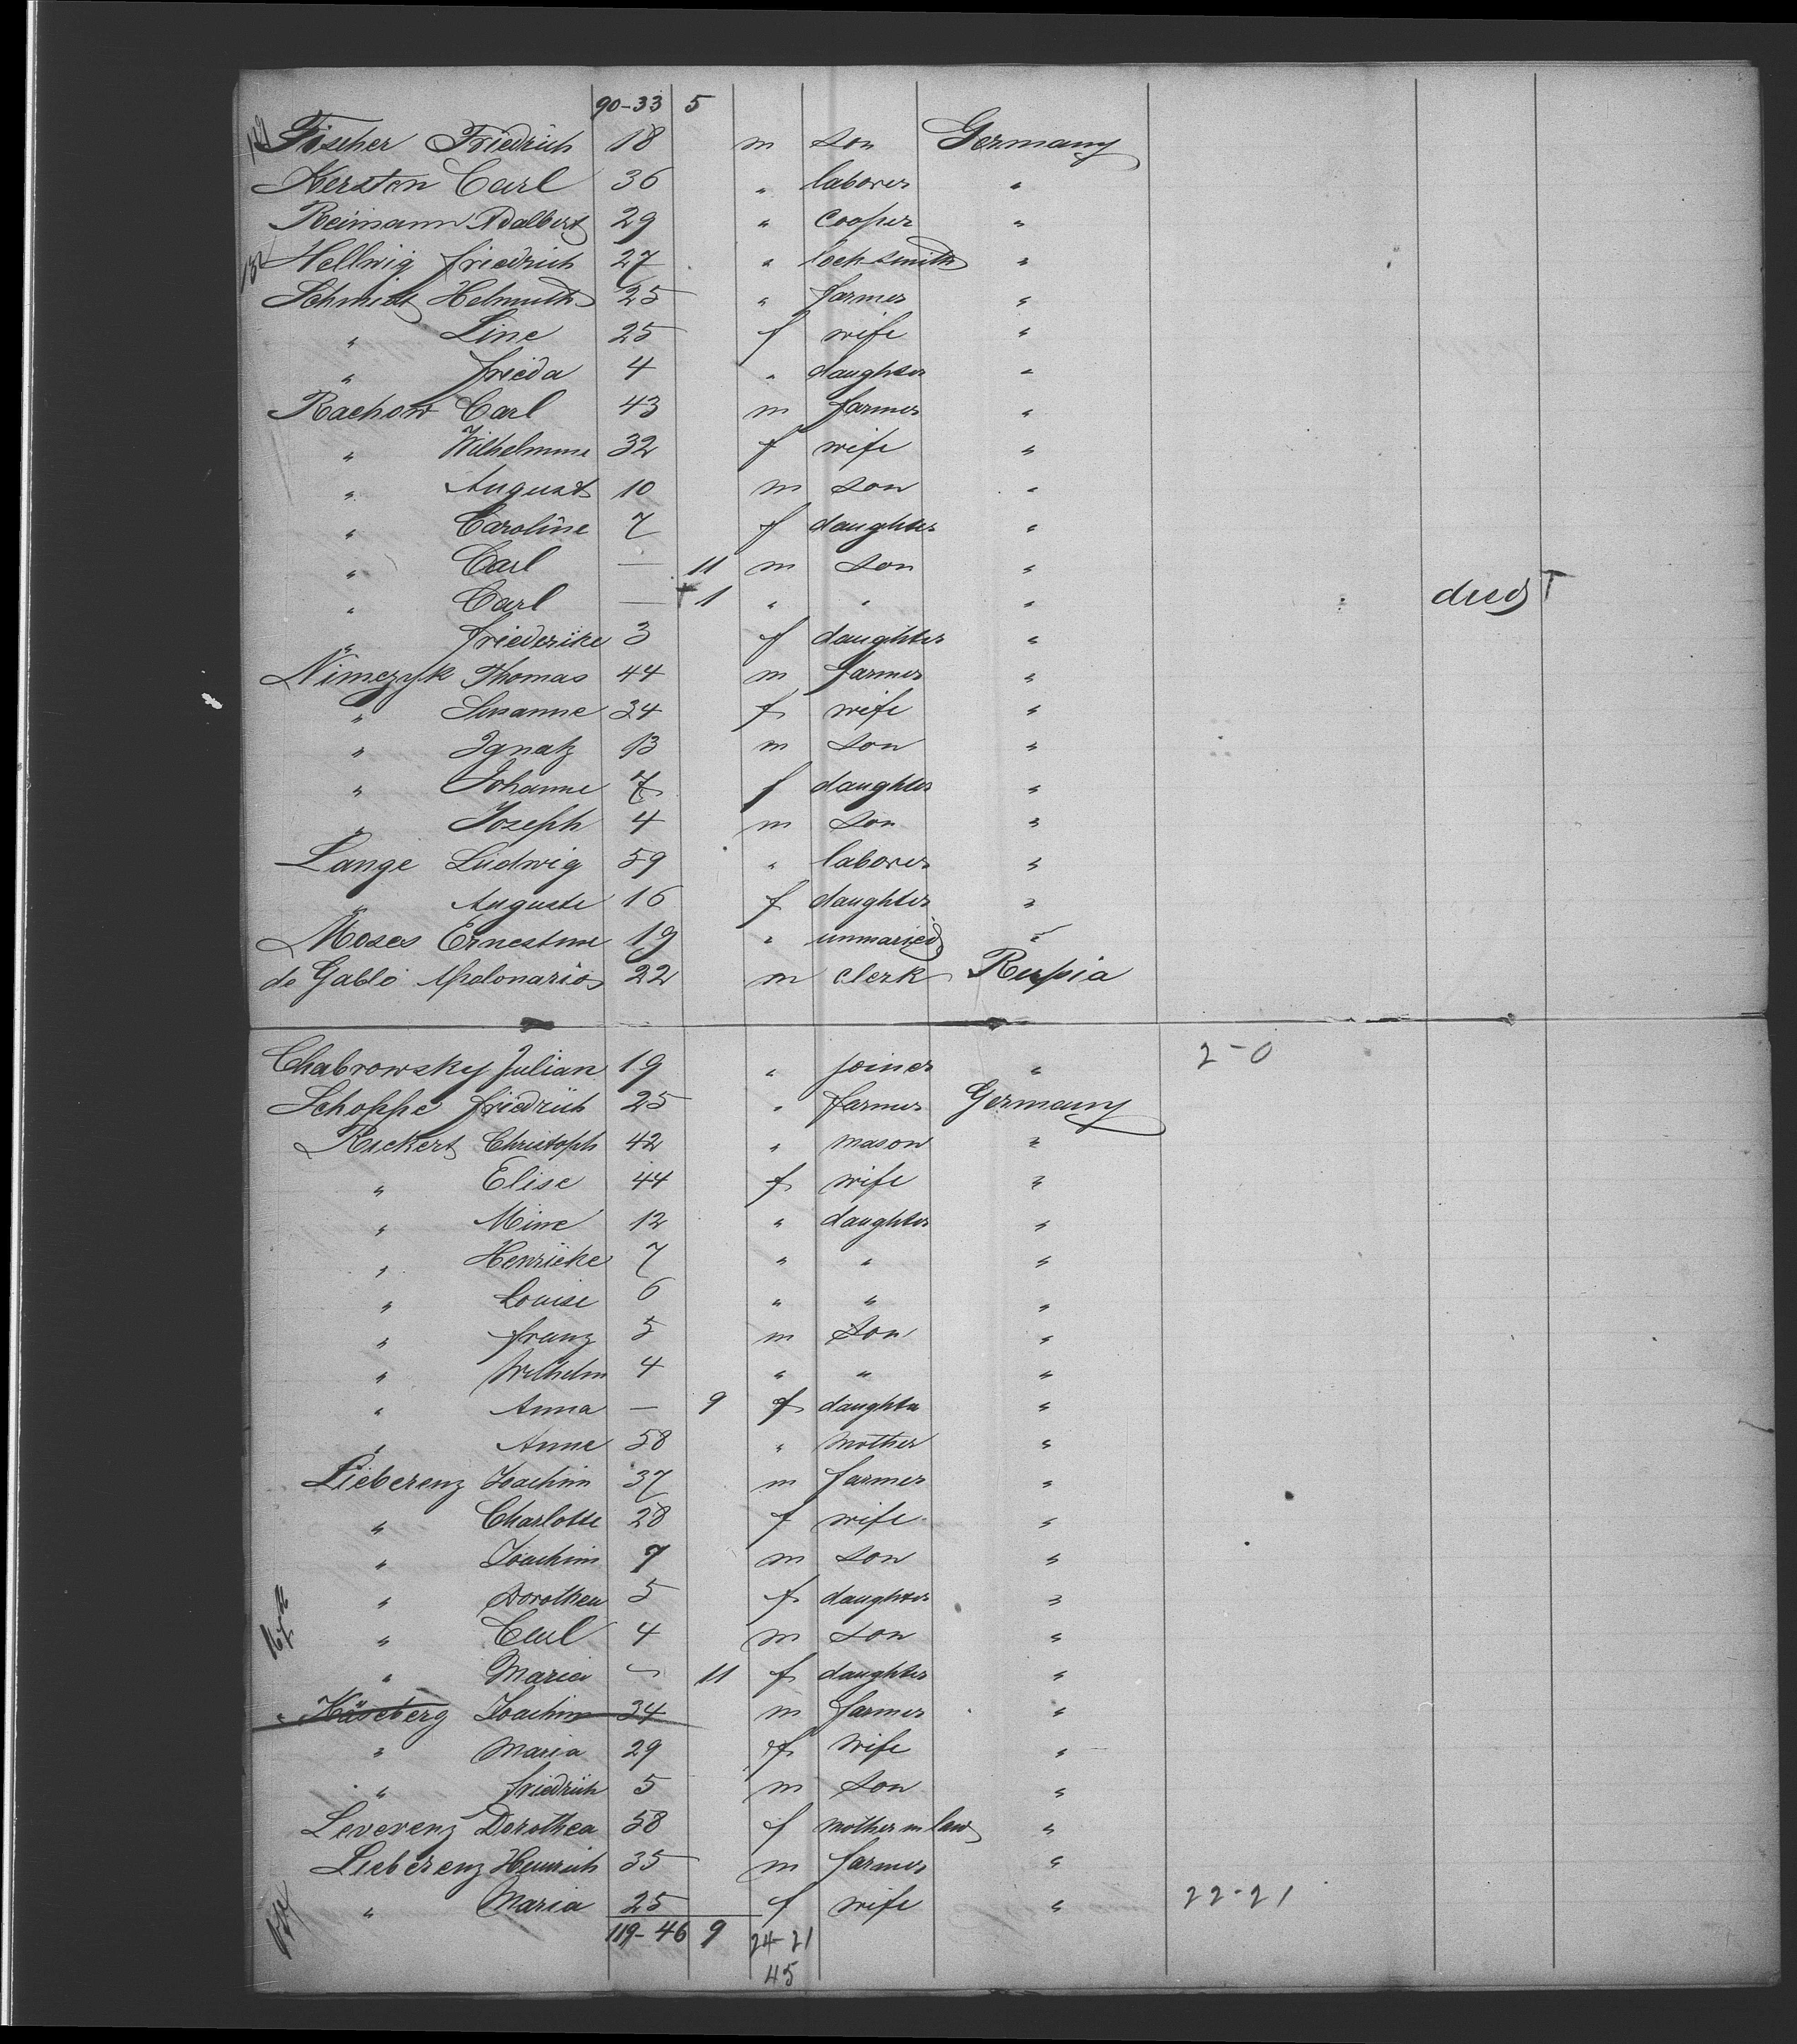 90-33 5
Fischer Friedrich 18 m son Germany
Kersten Carl 36 " laborer "
Reimann Adalbert 29 " cooper "
Hellwig Friedrich 27 " locksmith "
Schmidt Helmuth 25 " farmer "
" Line 25 f wife "
" Frieda 4 " daughter "
Rachow Carl 43 m farmer "
" Wilhelmine 32 f wife "
" August 10 m son "
" Caroline 7 f daughter "
" Carl — 11 m son "
" Carl — + 1 " " " died T
" Friederike 3 f daughter "
Nimczyk Thomas 44 m farmer "
" Susanne 34 f wife "
" Ignatz 13 m son "
" Johanne 7 f daughter "
" Joseph 4 m son "
Lange Ludwig 59 " laborer "
" Auguste 16 f daughter "
Moses Ernestine 19 " unmaried "
de Gablo 22 m clerk Russia
Chabrowsky Julian 19 " joiner " 2-0
Schoppe Friedrich 25 " farmer Germany
Rickert Christoph 42 " mason "
" Elise 44 f wife "
" Mine 12 " daughter "
" Henricke 7 " " "
" Louise 6 " " "
" Franz 5 m son "
" Wilhelm 4 " " "
" Anna — 9 f daughter "
" Anne 58 " mother "
Lieberenz Joachim 37 m farmer "
" Charlotte 28 f wife "
" Joachim 7 m son "
" Dorothea 5 f daughter "
" Carl 4 m son "
" Maria — 11 f daughter "
Käseberg Joachim 34 m farmer "
" Maria 29 f wife "
" Friedrich 5 m son "
Leverenz Dorothea 58 f mother in law "
Lieberenz Heinrich 35 m farmer "
" Maria 25 f wife " 22-21
119-46 9 24-21
45